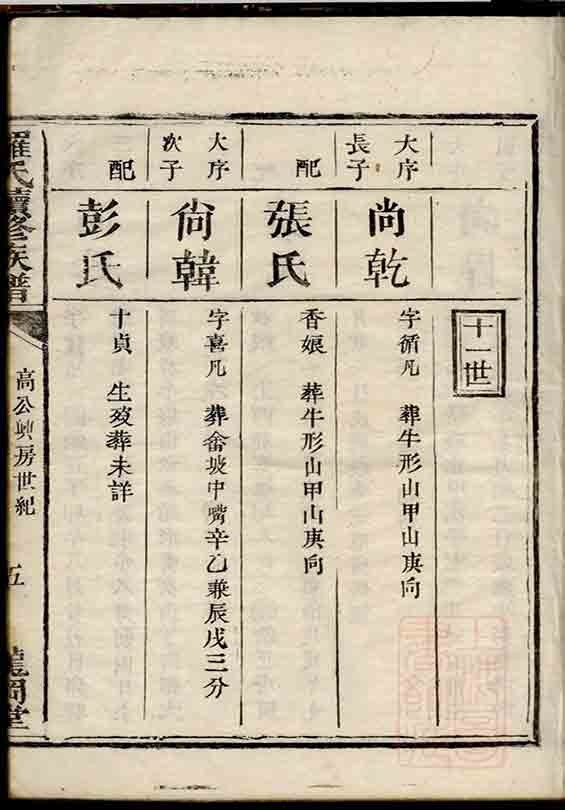 十一世
大序
長子
尚乾
字循凡 葬牛形山甲山庚向
配
張氏
香娘 葬牛形山甲山庚向
大序
次子
尙韓
字喜凡 葬畬坡中嘴辛乙兼辰戌三分
配
彭氏
十貞 生歿葬未詳
羅氏續修族譜
高公興房世紀
五